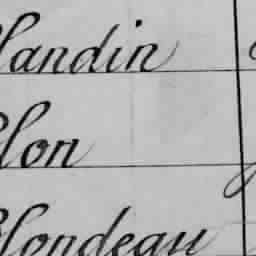 landin
lon
londeau